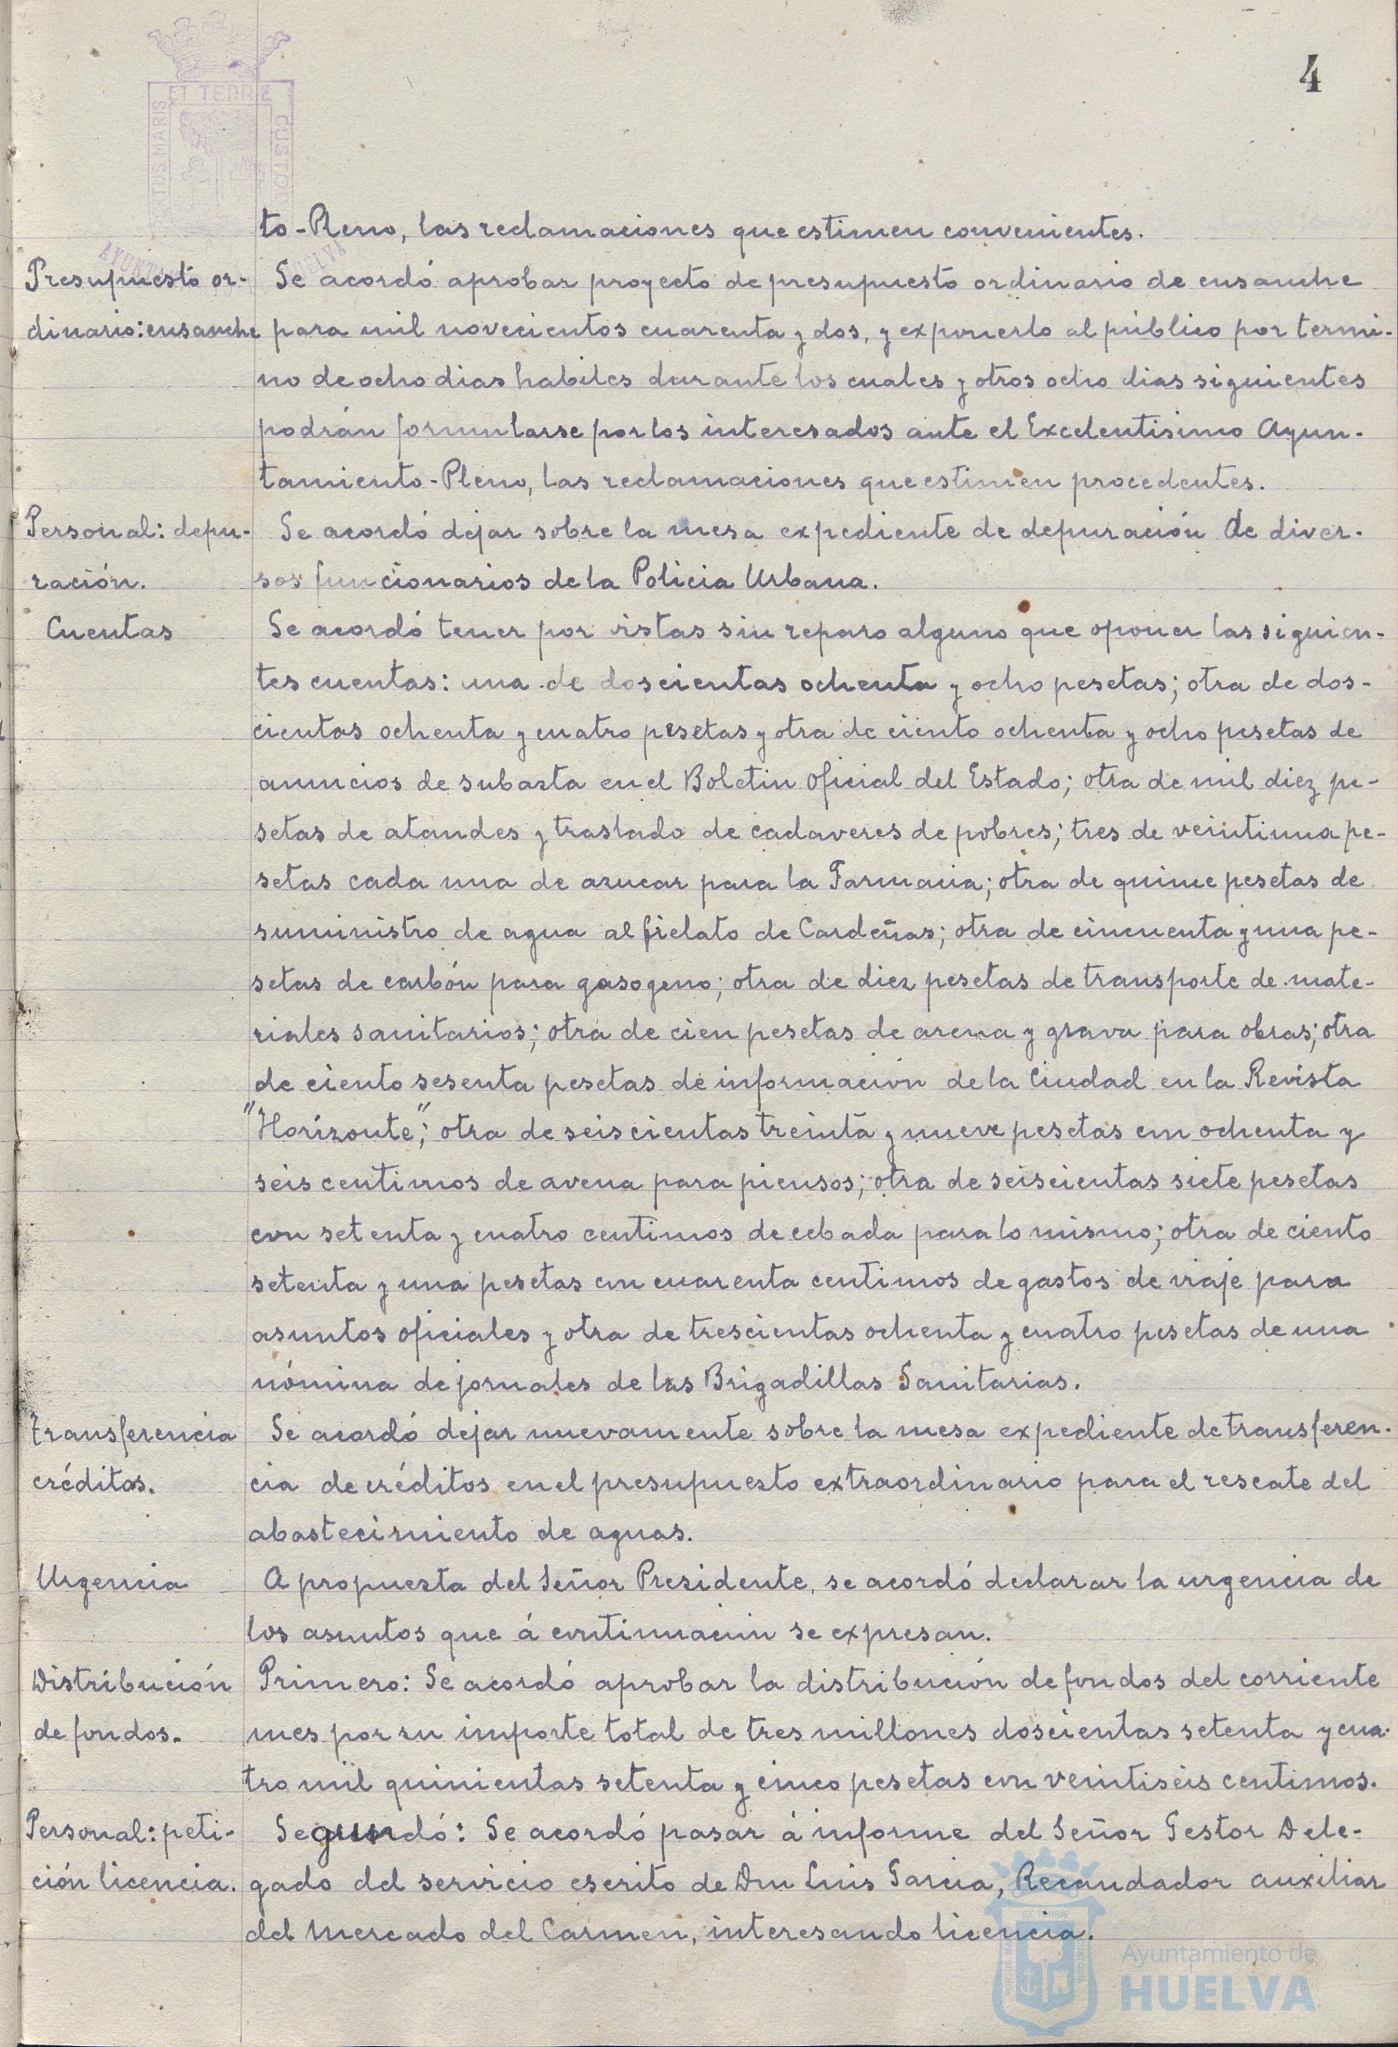 4
PORTUS MARIS ET TERRE CUSTO
to-Pleno, las reclamaciones que estimen convenientes.
Presupuesto or- Se acordó aprobar proyecto de presupuesto ordinario de ensanche
dinario: ensanche para mil novecientos cuarenta y dos, y exponerlo al público por termi-
no de ocho dias habiles durante los cuales y otros ocho dias siguientes
podrán formularse por los interesados ante el Excelentisimo Ayun-
tamiento-Pleno, las reclamaciones que estimen procedentes.
Personal: depu- Se acordó dejar sobre la mesa expediente de depuración de diver-
ración. sos funcionarios de la Policia Urbana.
Cuentas Se acordó tener por vistas sin reparo alguno que oponer las siguien-
tes cuentas: una de doscientas ochenta y ocho pesetas; otra de dos-
cientas ochenta y cuatro pesetas y otra de ciento ochenta y ocho pesetas de
anuncios de subasta en el Boletin Oficial del Estado; otra de mil diez pe-
setas de ataudes y traslado de cadaveres de pobres; tres de veintiuna pe-
setas cada una de azucar para la Farmacia; otra de quince pesetas de
suministro de agua al fielato de Cardeñas; otra de cincuenta y una pe-
setas de carbón para gasogeno; otra de diez pesetas de transporte de mate-
riales sanitarios; otra de cien pesetas de arena y grava para obras; otra
de ciento sesenta pesetas de información de la Ciudad en la Revista
"Horizonte"; otra de seiscientas treinta y nueve pesetas con ochenta y
seis centimos de avena para piensos; otra de seiscientas siete pesetas
con setenta y cuatro centimos de cebada para lo mismo; otra de ciento
setenta y una pesetas con cuarenta centimos de gastos de viaje para
asuntos oficiales y otra de trescientas ochenta y cuatro pesetas de una
nómina de jornales de las Brigadillas Sanitarias.
transferencia Se acordó dejar nuevamente sobre la mesa expediente de transferen-
créditos. cia de créditos en el presupuesto extraordinario para el rescate del
abastecimiento de aguas.
Urgencia A propuesta del Señor Presidente, se acordó declarar la urgencia de
los asuntos que á continuación se expresan.
Distribución Primero: Se acordó aprobar la distribución de fondos del corriente
de fondos. mes por su importe total de tres millones doscientas setenta y cua-
tro mil quinientas setenta y cinco pesetas con veintiseis centimos.
Personal: peti- Segundó: Se acordó pasar á informe del Señor Gestor Dele-
ción licencia. gado del servicio escrito de Don Luis Garcia, Recaudador auxiliar
del Mercado del Carmen, interesando licencia.
Ayuntamiento de
HUELVA